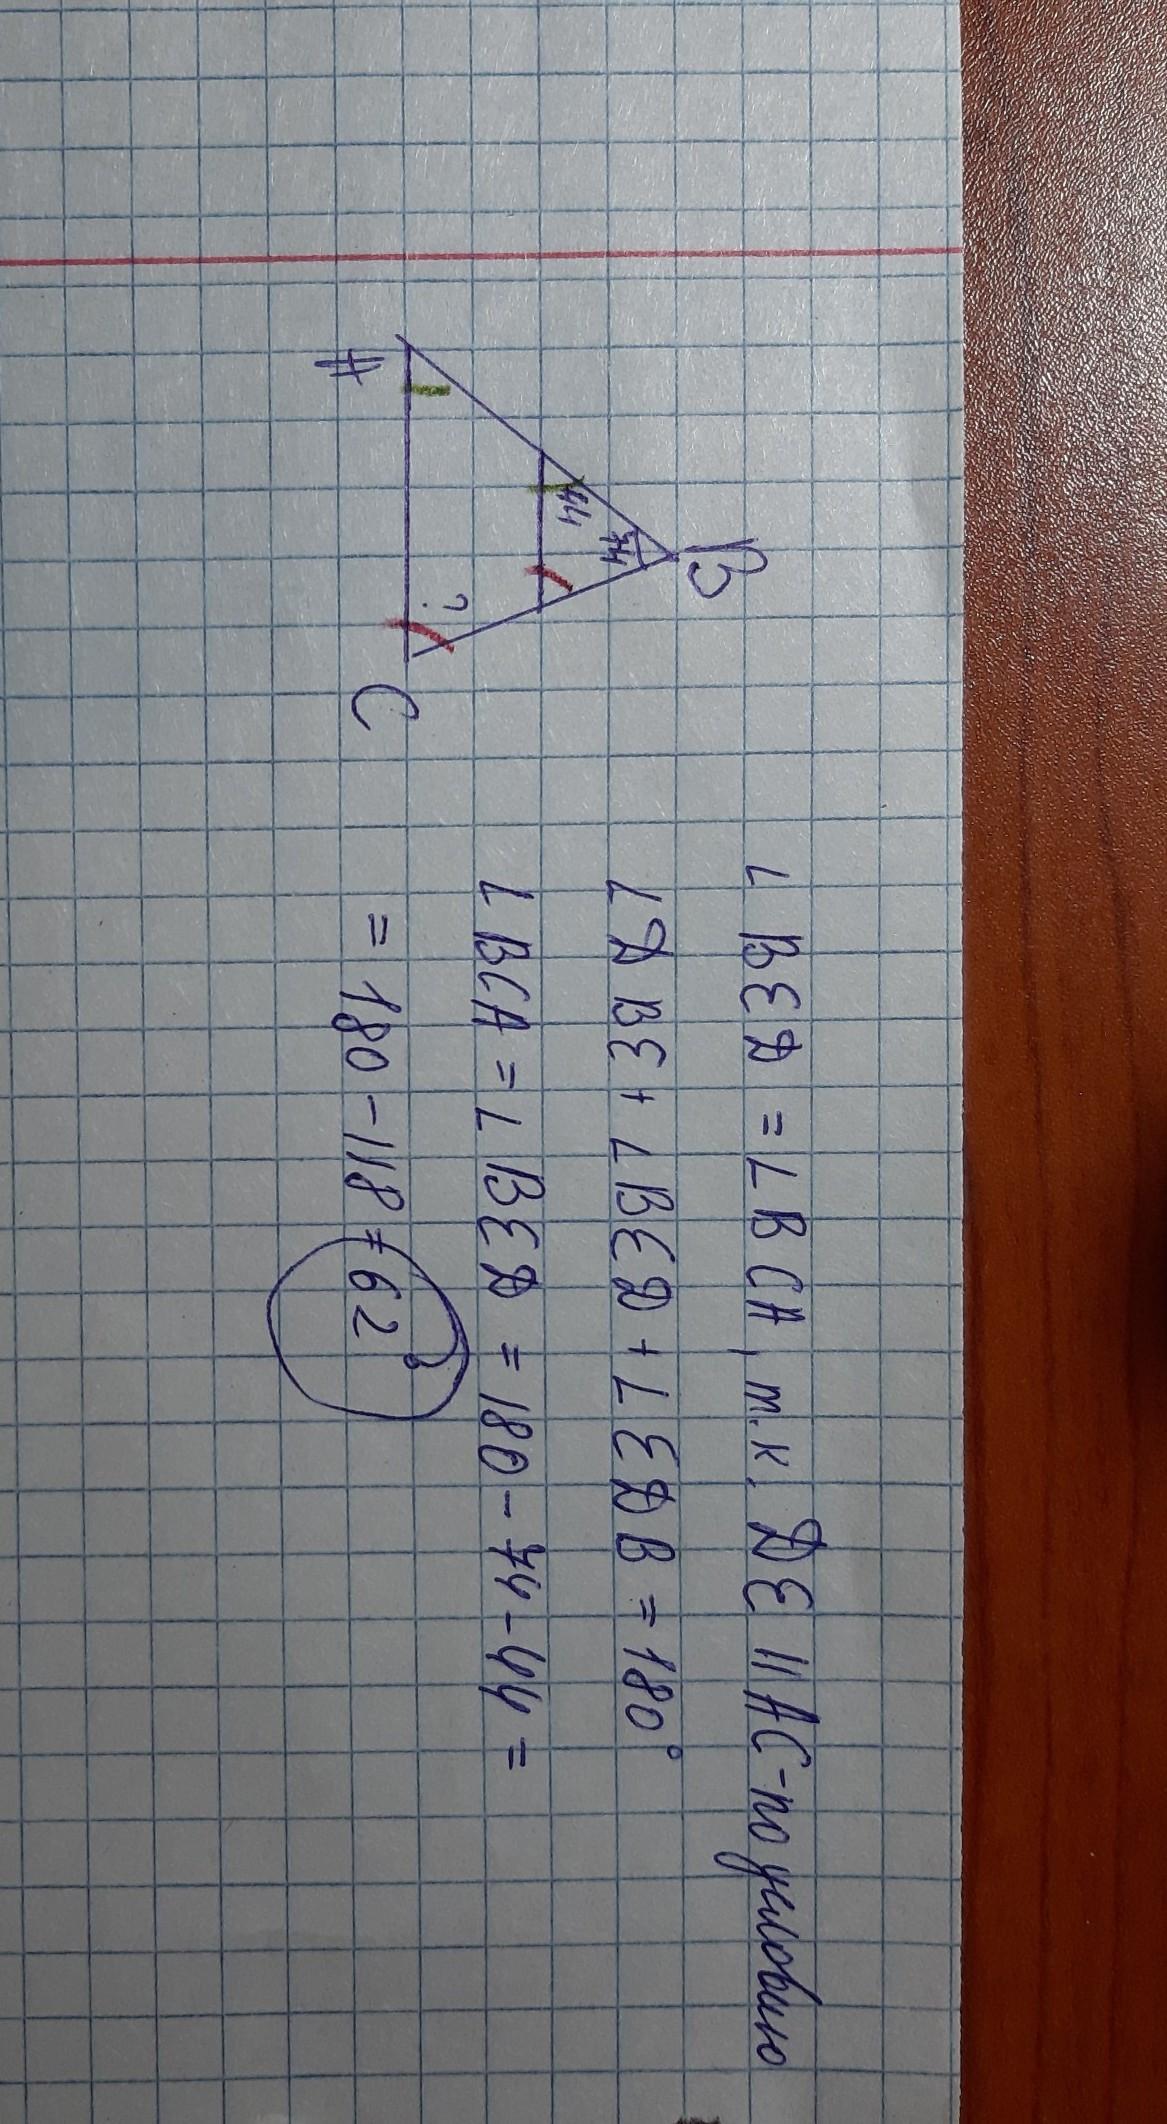 B
74
44
?
A
C
∠ BED = ∠ BCA, т.к. DE || AC - по условию
∠ DBE + ∠ BED + ∠ EDB = 180°
∠ BCA = ∠ BED = 180 - 74 - 44 =
= 180 - 118 = 62°